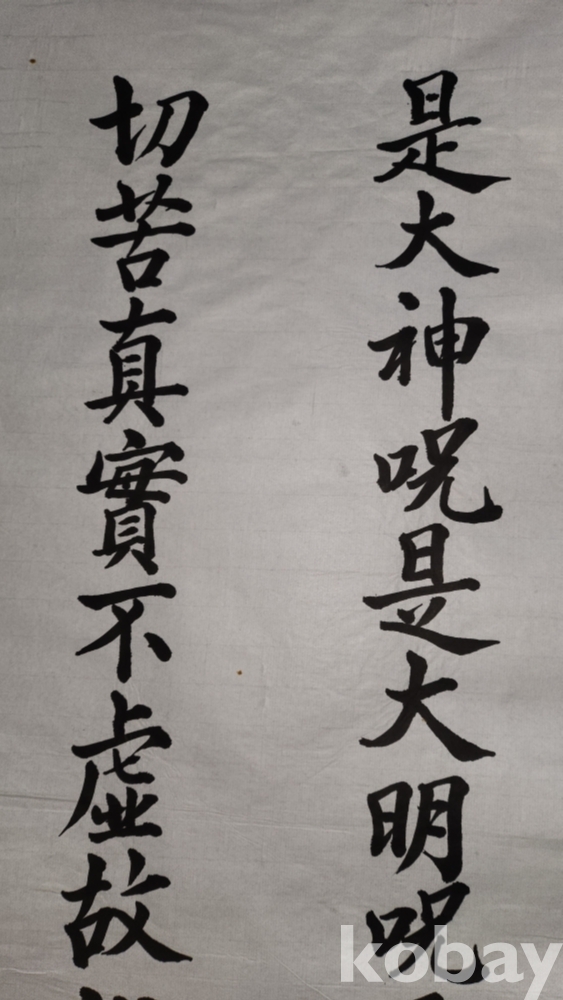 是大神咒是大明咒
切苦真實不虛故
kobay